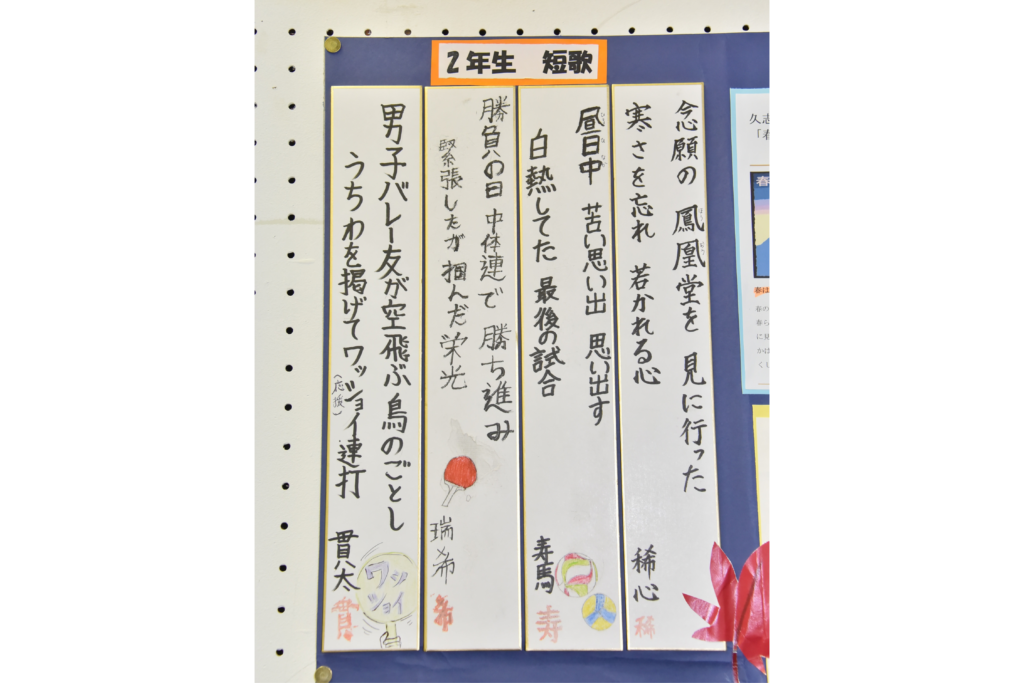 2年生 短歌
念願の 鳳凰堂を 見に行った
寒さを忘れ 若かれる心
稀心
稀
昼日中 苦い思い出 思い出す
白熱してた 最後の試合
寿馬
寿
勝負の日 中体連で 勝ち進み
緊張したが 掴んだ栄光
瑞希
希
男子バレー友が空飛ぶ鳥のごとし
うちわを掲げてワッショイ連打
(応援)
貫太
貫
ワッショイ
久志
春